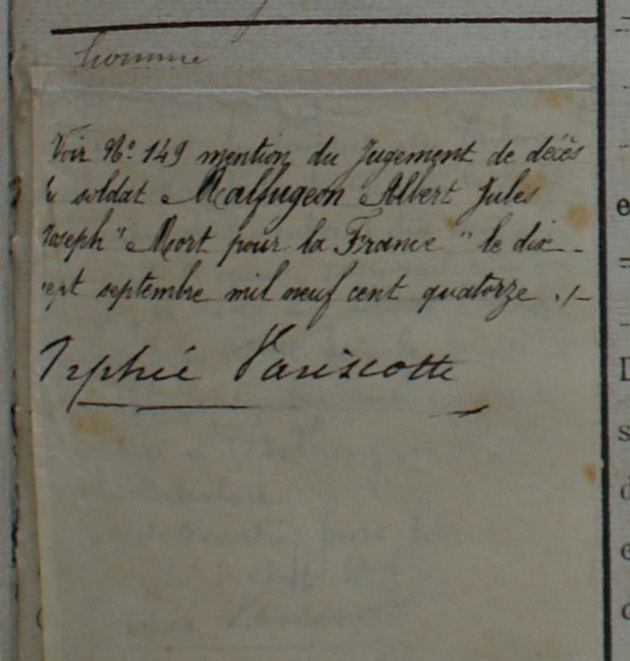 homme
Voir N° 149 mention du Jugement de décès
soldat Malfugeon Albert Jules
Joseph "Mort pour la France" le dix-
sept septembre mil neuf cent quatorze ./-